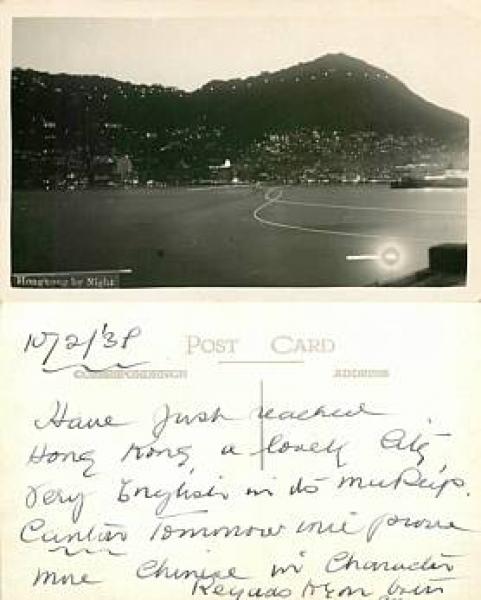 Hongkong by Night
10/2/'38
POST CARD
CORRESPONDENCE
ADDRESS
Have just reached
Hong Kong a lovely City,
Very English in its makeup.
Canton Tomorrow will prove
more Chinese in Character
Regards from